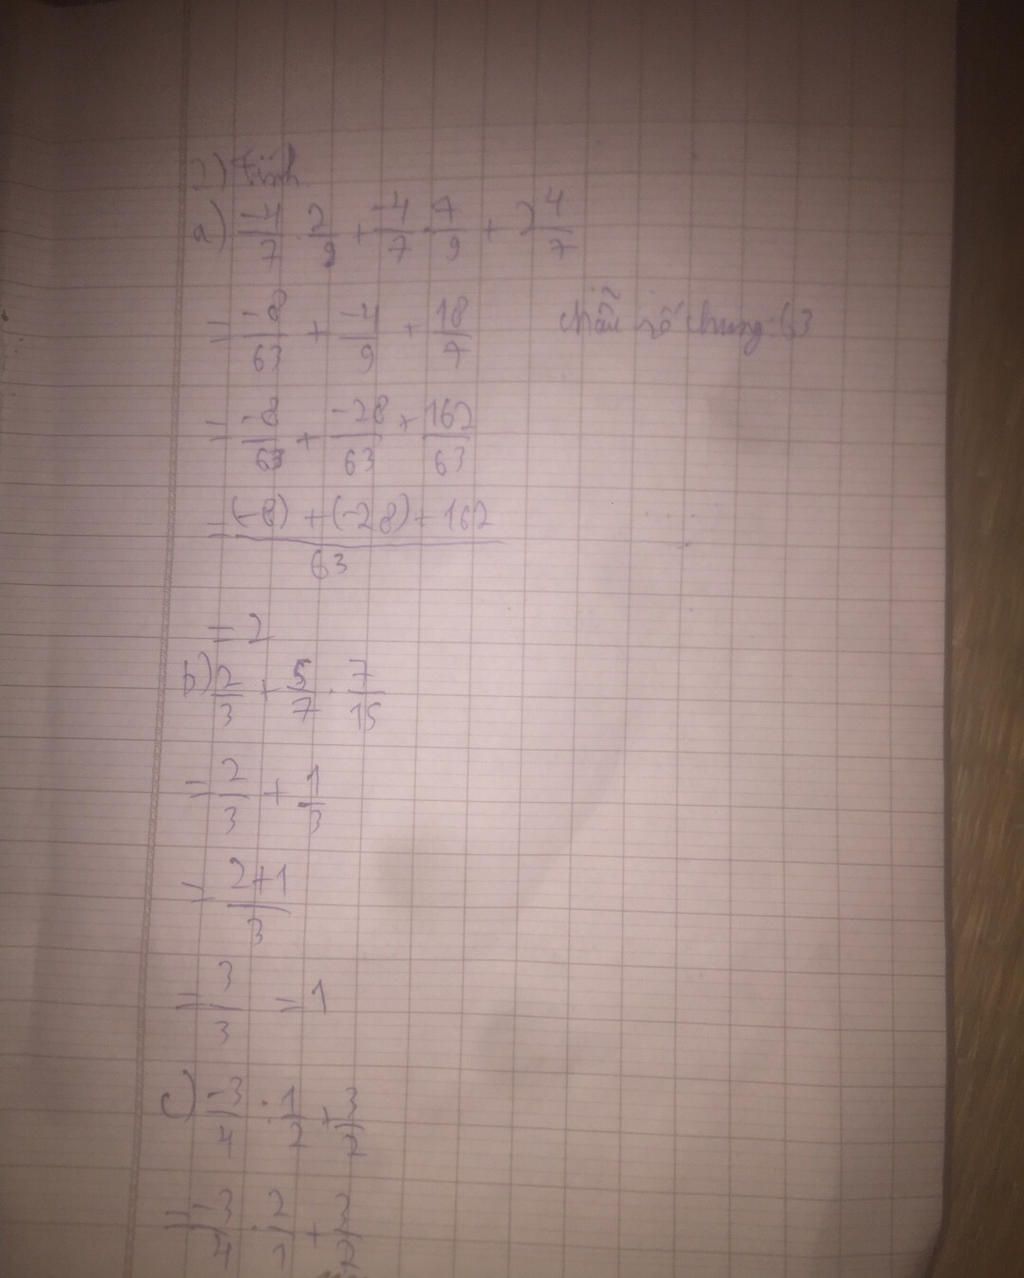 2) Tính
a) -4/7 . 2/9 + -4/7 . 7/9 + 2 4/7
= -8/63 + -4/9 + 18/7 Mẫu số chung: 63
= -8/63 + -28/63 + 162/63
= (-8) + (-28) + 162 / 63
= 2
b) 2/3 + 5/7 . 7/15
= 2/3 + 1/3
= 2+1 / 3
= 3/3 = 1
c) -3/4 : 1/2 + 3/2
= -3/4 . 2/1 + 3/2